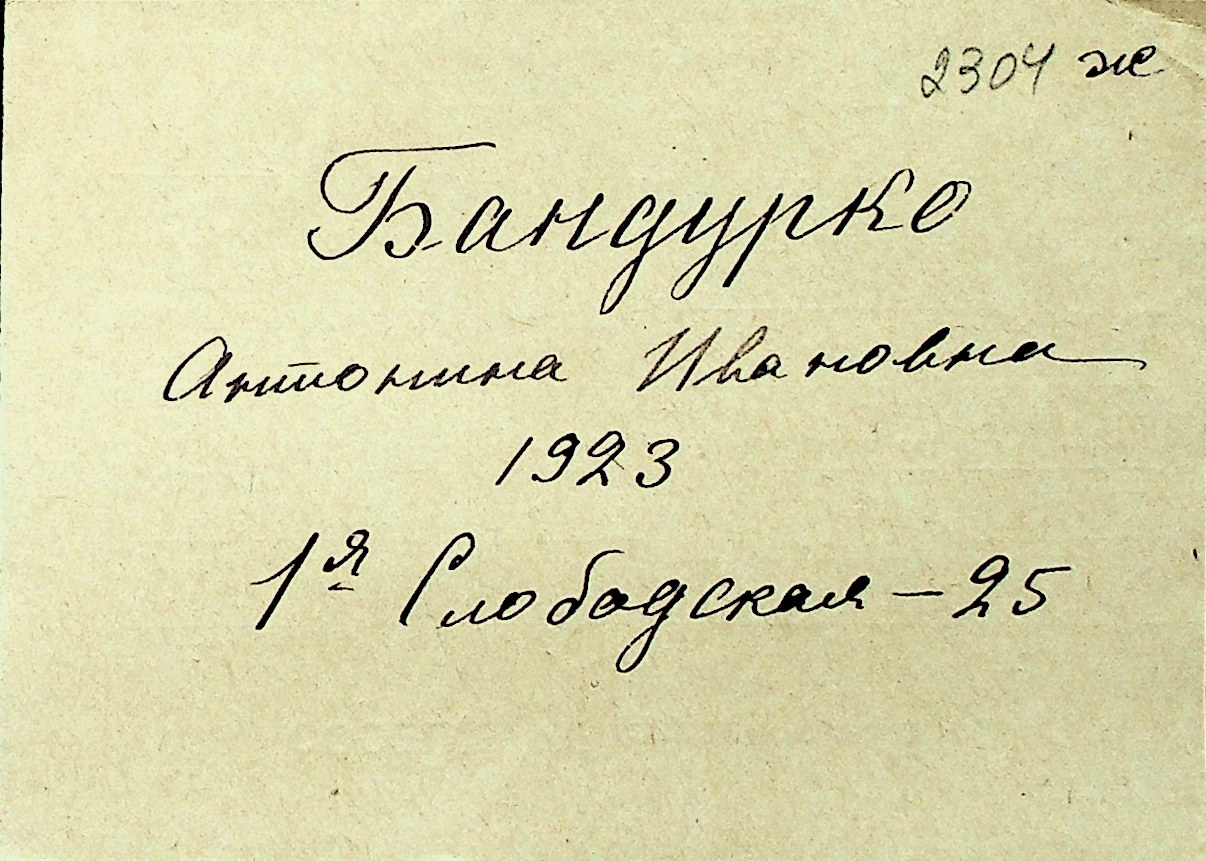 2304 ж
Бандурко
Антонина Ивановна
1923
1я Слободская – 25